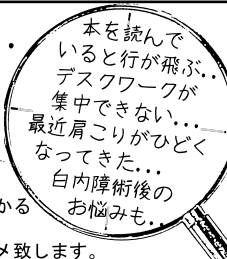 本を読んで
いると行が飛ぶ..
デスクワークが
集中できない...
最近肩こりがひどく
なってきた...
白内障術後の
お悩みも..
かる
メ致します。